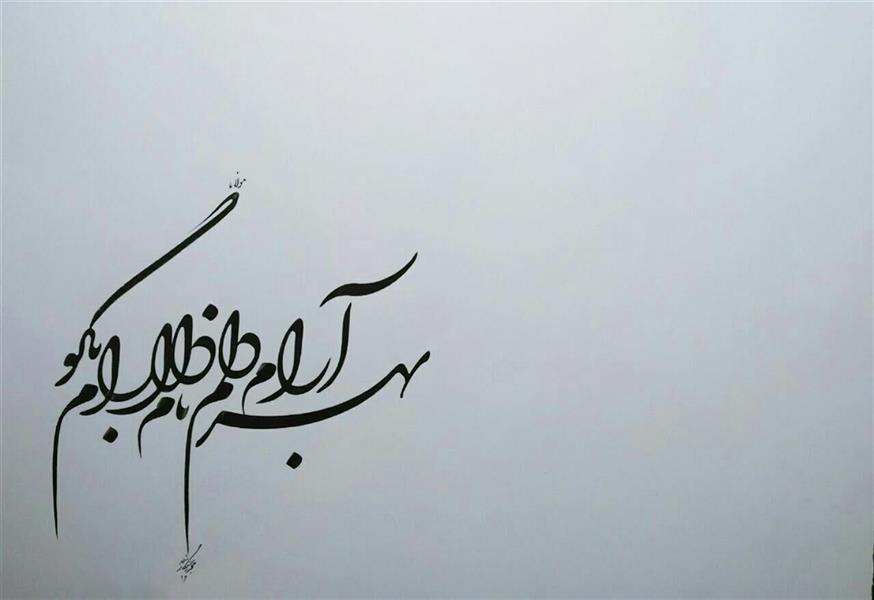 مولانا
بهر آرام دلم نام دلارام بگو